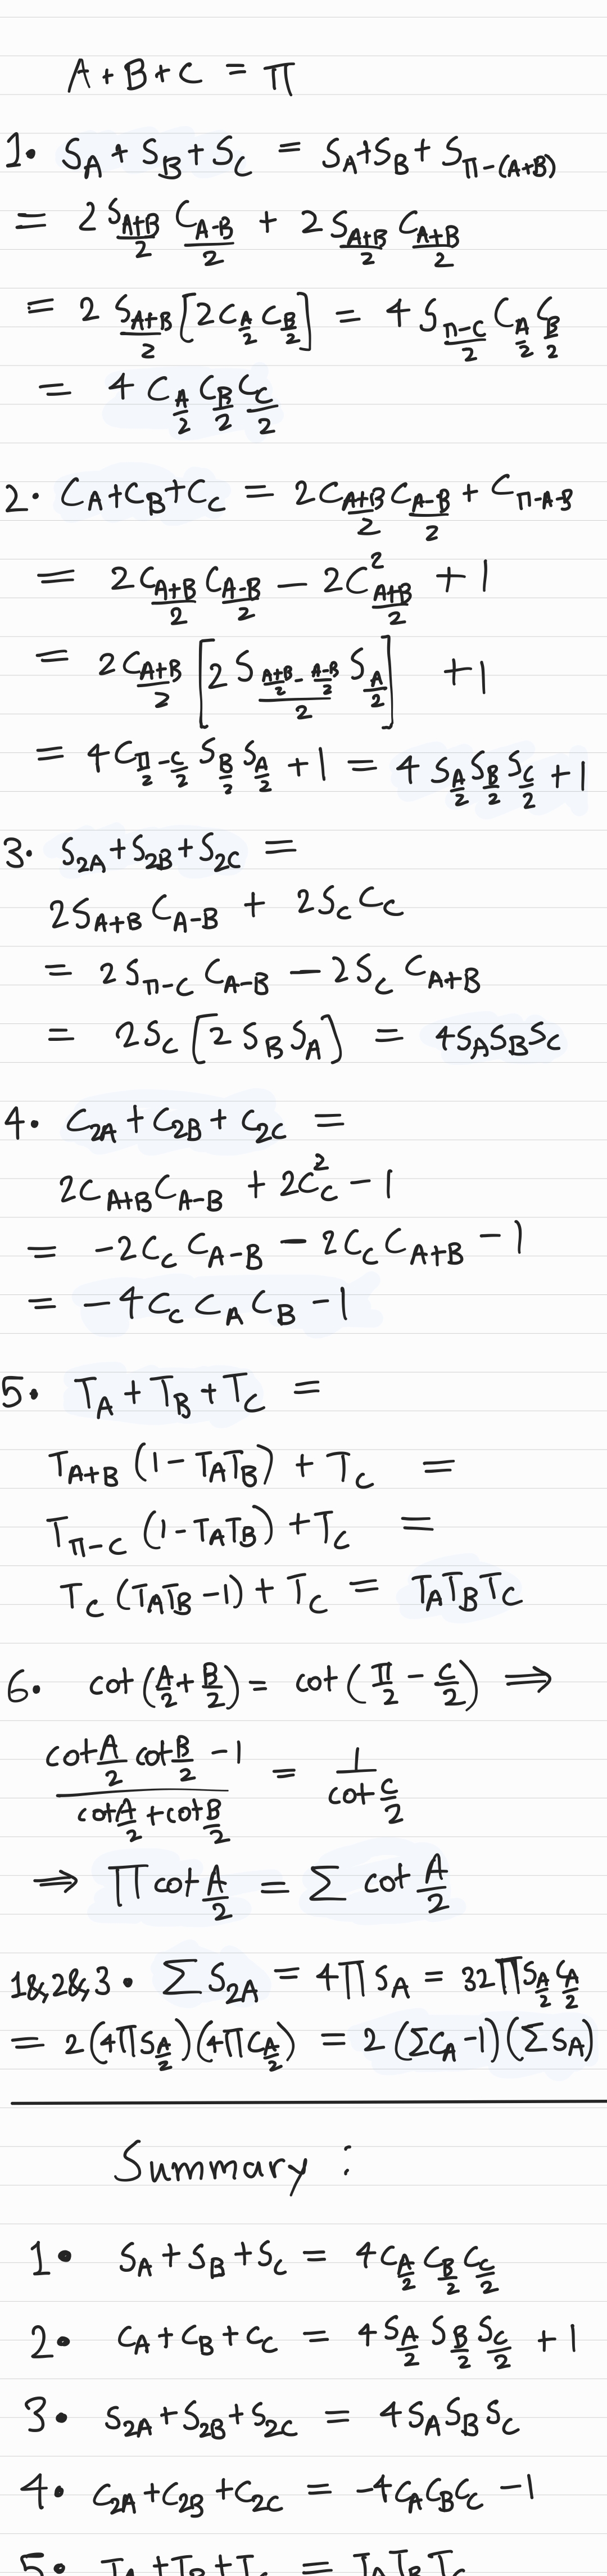 A + B + C = π
1. S_A + S_B + S_C = S_A + S_B + S_{π-(A+B)}
= 2 S_{(A+B)/2} C_{(A-B)/2} + 2 S_{(A+B)/2} C_{(A+B)/2}
= 2 S_{(A+B)/2} [2 C_{A/2} C_{B/2}] = 4 S_{(π-C)/2} C_{A/2} C_{B/2}
= 4 C_{A/2} C_{B/2} C_{C/2}
2. C_A + C_B + C_C = 2 C_{(A+B)/2} C_{(A-B)/2} + C_{π-A-B}
= 2 C_{(A+B)/2} C_{(A-B)/2} - 2 C²_{(A+B)/2} + 1
= 2 C_{(A+B)/2} [2 S_{((A+B)/2 - (A-B)/2)/2} S_{A/2}] + 1
= 4 C_{π/2 - C/2} S_{B/2} S_{A/2} + 1 = 4 S_{A/2} S_{B/2} S_{C/2} + 1
3. S_{2A} + S_{2B} + S_{2C} =
2 S_{A+B} C_{A-B} + 2 S_C C_C
= 2 S_{π-C} C_{A-B} - 2 S_C C_{A+B}
= 2 S_C [2 S_B S_A] = 4 S_A S_B S_C
4. C_{2A} + C_{2B} + C_{2C} =
2 C_{A+B} C_{A-B} + 2 C²_C - 1
= -2 C_C C_{A-B} - 2 C_C C_{A+B} - 1
= -4 C_C C_A C_B - 1
5. T_A + T_B + T_C =
T_{A+B} (1 - T_A T_B) + T_C =
T_{π-C} (1 - T_A T_B) + T_C =
T_C (T_A T_B - 1) + T_C = T_A T_B T_C
6. cot(A/2 + B/2) = cot(π/2 - C/2) ⟹
(cot A/2 cot B/2 - 1)/(cot A/2 + cot B/2) = 1/(cot C/2)
⟹ ∏ cot A/2 = ∑ cot A/2
1&,2&,3. ∑ S_{2A} = 4 ∏ S_A = 32 ∏ S_{A/2} C_{A/2}
= 2 (4 ∏ S_{A/2}) (4 ∏ C_{A/2}) = 2 (∑ C_A - 1) (∑ S_A)
Summary :
1. S_A + S_B + S_C = 4 C_{A/2} C_{B/2} C_{C/2}
2. C_A + C_B + C_C = 4 S_{A/2} S_{B/2} S_{C/2} + 1
3. S_{2A} + S_{2B} + S_{2C} = 4 S_A S_B S_C
4. C_{2A} + C_{2B} + C_{2C} = -4 C_A C_B C_C - 1
5. T_A + T_B + T_C = T_A T_B T_C